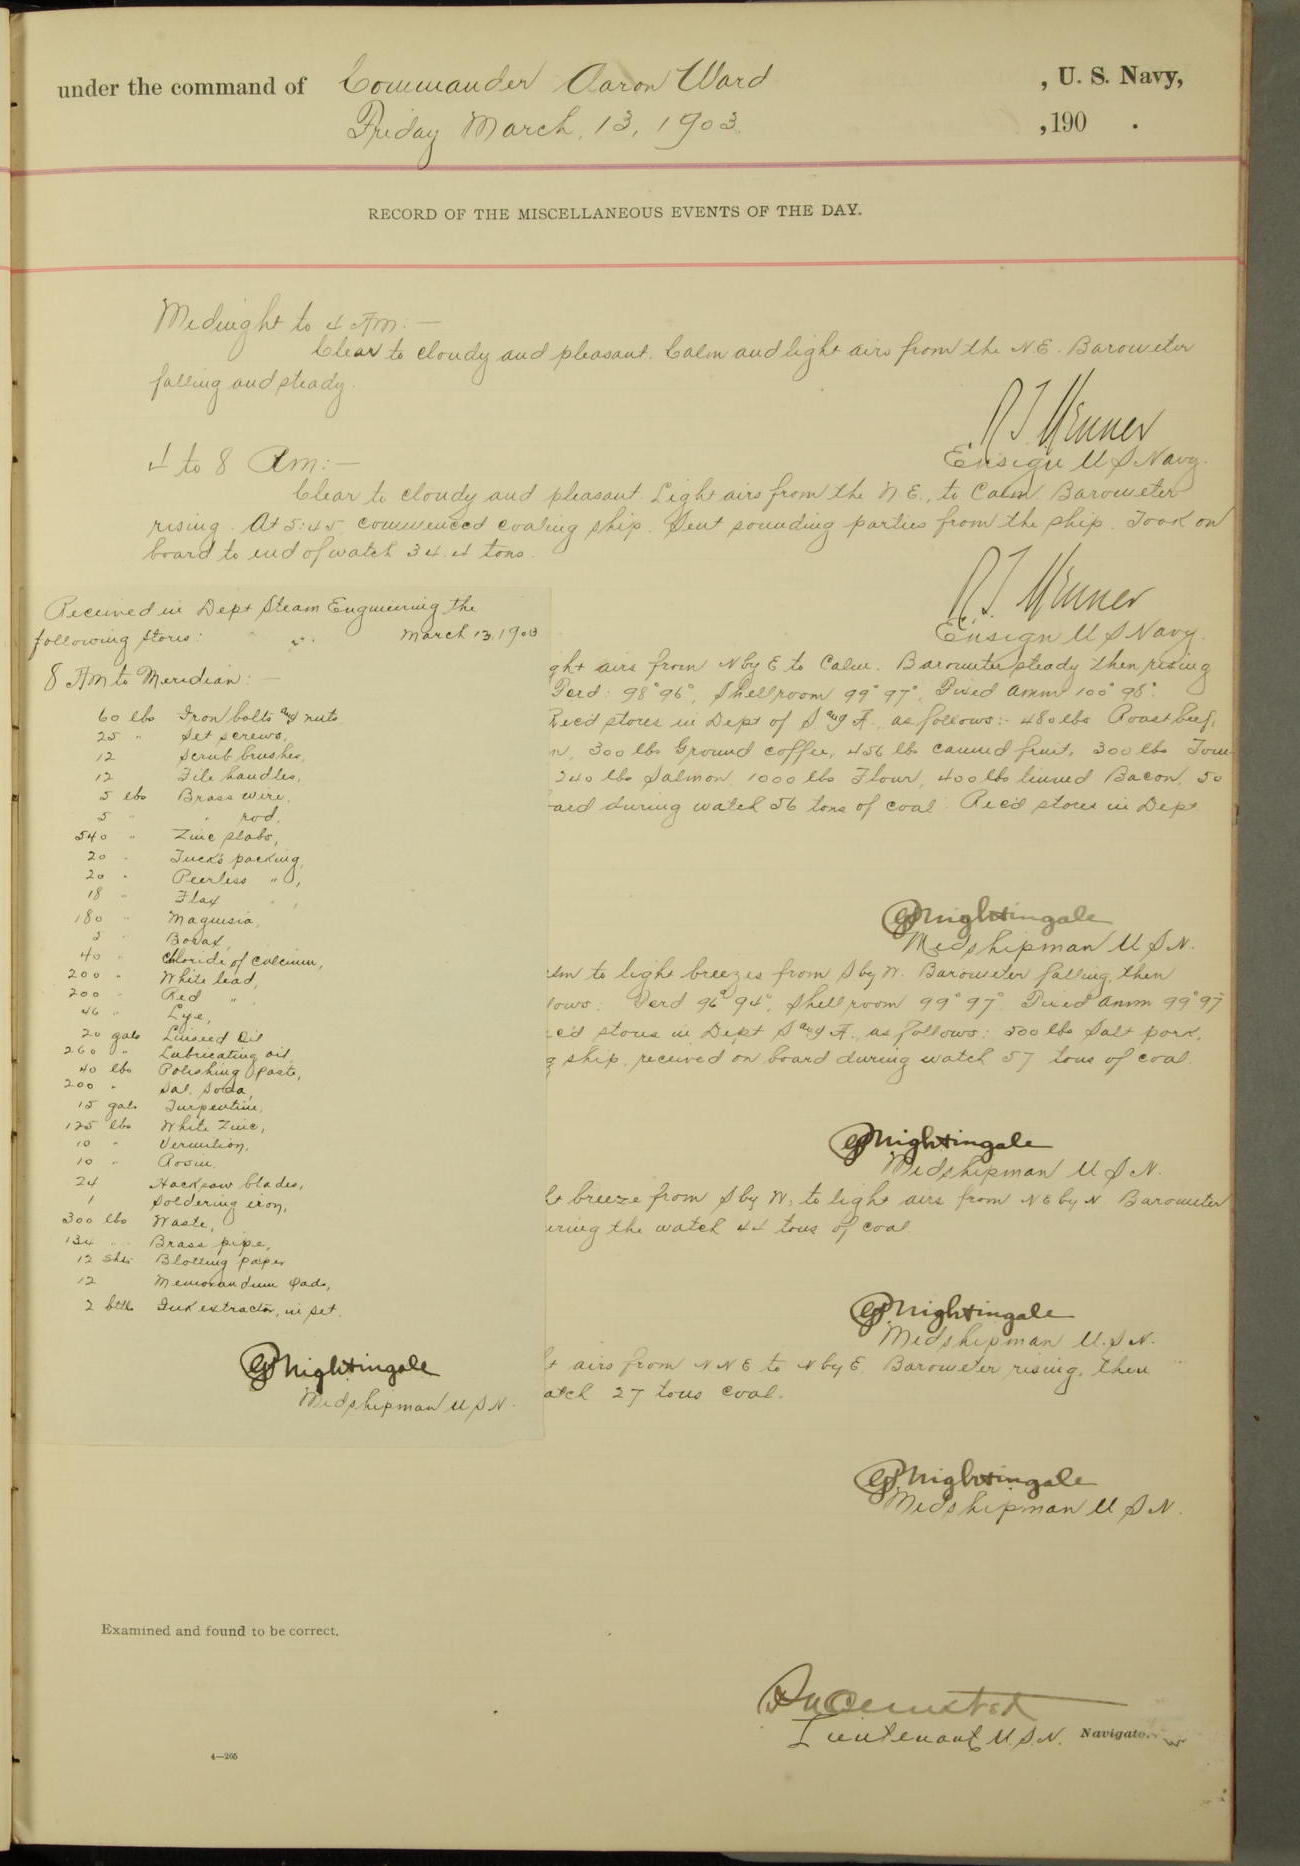 under the command of Commander Aaron Ward , U. S. Navy,
Friday March, 13, 1903. , 190 .
RECORD OF THE MISCELLANEOUS EVENTS OF THE DAY.
Midnight to 4 AM:—
Clear to cloudy and pleasant. Calm and light airs from the N E. Barometer
falling and steady.
Ensign U S Navy.
4 to 8 Am:—
Clear to cloudy and pleasant. Light airs from the N E., to Calm. Barometer
rising. At 5:45 commenced coaling ship. Sent sounding parties from the ship. Took on
board to end of watch 34.4 tons.
Ensign U S Navy.
Received in Dept Steam Engineering the
following stores: March 13, 1903
8 AM to Meridian: —
60 lbs Iron bolts and nuts
25 " Set screws,
12 Scrub brushes,
12 File handles,
5 lbs Brass wire,
5 " " rod,
540 " Zinc slabs,
20 " Tuck's packing,
20 " Peerless " ,
18 " Flax " ,
180 " Magnesia,
2 " Borax,
40 " Chloride of calcium,
200 " White lead,
200 " Red "
46 " Lye,
20 gals Linseed Oil
260 " Lubricating oil,
40 lbs Polishing paste,
200 " Sal. Soda,
15 gals Turpentine,
125 lbs White Zinc,
10 " Vermilion,
10 " Rosin,
24 Hacksaw blades,
1 Soldering iron,
300 lbs Waste,
134 " Brass pipe,
12 shts Blotting paper
12 Memorandum Pads,
2 bttls Ink extractor, in set.
Nightingale
Midshipman U S N.
ght airs from N by E to Calm. Barometer steady then rising
Ford: 98° 96°, Shellroom 99° 97°. Fixed amm 100° 98°.
Rec'd stores in Dept of S and A., as follows:- 480 lbs Roast beef,
n, 300 lbs Ground coffee, 456 lb canned fruit, 300 lbs Tom-
240 lbs Salmon 1000 lbs Flour, 400 lbs tinned Bacon, 50
oard during watch 56 tons of coal. Rec'd stores in Dept
Nightingale
Midshipman U S N.
alm to light breezes from S by W. Barometer falling, then
lows: Ford 96° 94°, Shell room 99° 97° Fixed amm 99° 97°
ec'd stores in Dept S and A., as follows: 500 lbs Salt pork,
g ship, received on board during watch 57 tons of coal.
Nightingale
Midshipman U S N.
ht breeze from S by W, to light airs from N E by N. Barometer
uring the watch 44 tons of coal
Nightingale
Midshipman U.S.N.
ht airs from N N E to N by E. Barometer rising, then
atch 27 tons coal.
Nightingale
Midshipman U S N.
Examined and found to be correct.
Lieutenant U.S.N. Navigator
4—265